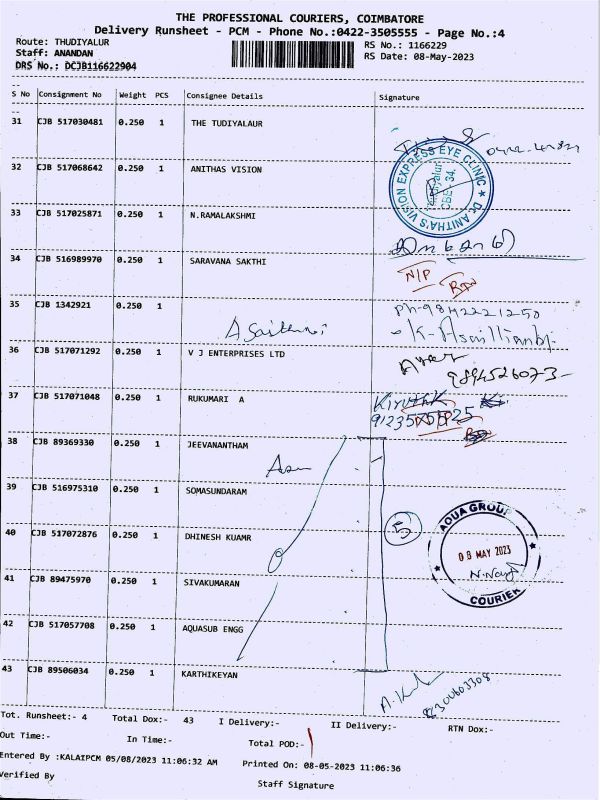 THE PROFESSIONAL COURIERS, COIMBATORE
Delivery Runsheet - PCM - Phone No.:0422-3505555 - Page No.:4
Route: THUDIYALUR
RS No.: 1166229
Staff: ANANDAN
RS Date: 08-May-2023
DRS No.: DCJB116622904
S No Consignment No Weight PCS Consignee Details Signature
31 CJB 517030481 0.250 1 THE TUDIYALAUR
32 CJB 517068642 0.250 1 ANITHAS VISION
Dr. ANITHA'S VISION EXPRESS EYE CLINIC
33 CJB 517025871 0.250 1 N.RAMALAKSHMI
34 CJB 516989970 0.250 1 SARAVANA SAKTHI
N/P
35 CJB 1342921 0.250 1
ph-9842221250
36 CJB 517071292 0.250 1 V J ENTERPRISES LTD
9894526073-
37 CJB 517071048 0.250 1 RUKUMARI A
38 CJB 89369330 0.250 1 JEEVANANTHAM
39 CJB 516975310 0.250 1 SOMASUNDARAM
40 CJB 517072876 0.250 1 DHINESH KUAMR
5
AQUA GROUP
09 MAY 2023
COURIER
41 CJB 89475970 0.250 1 SIVAKUMARAN
42 CJB 517057708 0.250 1 AQUASUB ENGG
43 CJB 89506034 0.250 1 KARTHIKEYAN
Tot. Runsheet:- 4 Total Dox:- 43 I Delivery:- II Delivery:- RTN Dox:-
Out Time:- In Time:- Total POD:-
Entered By :KALAIPCM 05/08/2023 11:06:32 AM Printed On: 08-05-2023 11:06:36
Verified By
Staff Signature